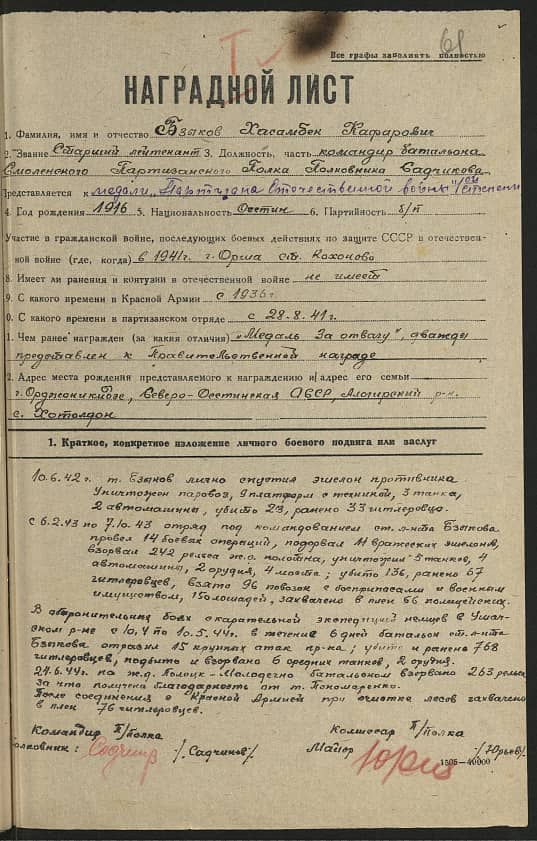 61
Все графы заполнять полностью
I
НАГРАДНОЙ ЛИСТ
1. Фамилия, имя и отчество Бзыков Хасамбек Кафарович
2. Звание Старший лейтенант 3. Должность, часть командир батальона
Смоленского Партизанского Полка Полковника Садчикова
Представляется к медали "Партизана Отечественной войны" I степени
4. Год рождения 1916 5. Национальность Осетин 6. Партийность б/п
Участие в гражданской войне, последующих боевых действиях по защите СССР в отечествен-
ной войне (где, когда) в 1941г. г. Орша ст. Коханово
8. Имеет ли ранения и контузии в отечественной войне не имеет
9. С какого времени в Красной Армии с 1936г.
0. С какого времени в партизанском отряде с 28.8.41г.
1. Чем ранее награжден (за какия отличия) "Медаль За отвагу", дважды
представлен к Правительственной награде
2. Адрес места рождения представляемого к награждению и адрес его семьи
г. Орджоникидзе, Северо-Осетинская АССР, Алагирский р-н.
с. Хоталдон
1. Краткое, конкретное изложение личного боевого подвига или заслуг
10.6.42г. т. Бзыков лично спустил эшелон противника.
Уничтожен паровоз, 9 платформ с техникой, 3 танка,
2 автомашины, убито 23, ранено 33 гитлеровцо.
с 6.2.43 по 7.10.43 отряд под командованием ст. л-та Бзыкова
провел 14 боевых операций, подорвал 11 вражеских эшелонов,
взорвал 242 рельса ж.д. полотна, уничтожил 5 танков, 4
автомашины, 2 орудия, 4 моста; убито 136, ранено 57
гитлеровцев, взято 96 повозок с боеприпасами и военным
имуществом, 150 лошадей, захвачено в плен 66 полицейских.
В оборонительных боях с карательной экспедицией немцев в Ушач-
ском р-не с 10.4 по 10.5.44г. в течение 6 дней батальон ст. л-та
Бзыкова отразил 15 крупных атак пр-ка; убито и ранено 768
гитлеровцев, подбито и взорвано 6 средних танков, 2 орудия.
24.6.44г. на ж.д. Полоцк-Молодечно батальоном взорвано 263 рельса
за что получена благодарность от т. Пономаренко.
После соединения с Красной Армией при очистке лесов захвачено
в плен 76 гитлеровцев.
Командир П/полка
олковник: /Садчиков/
Комиссар П/полка
Майор /Юрьев/
1505-40000